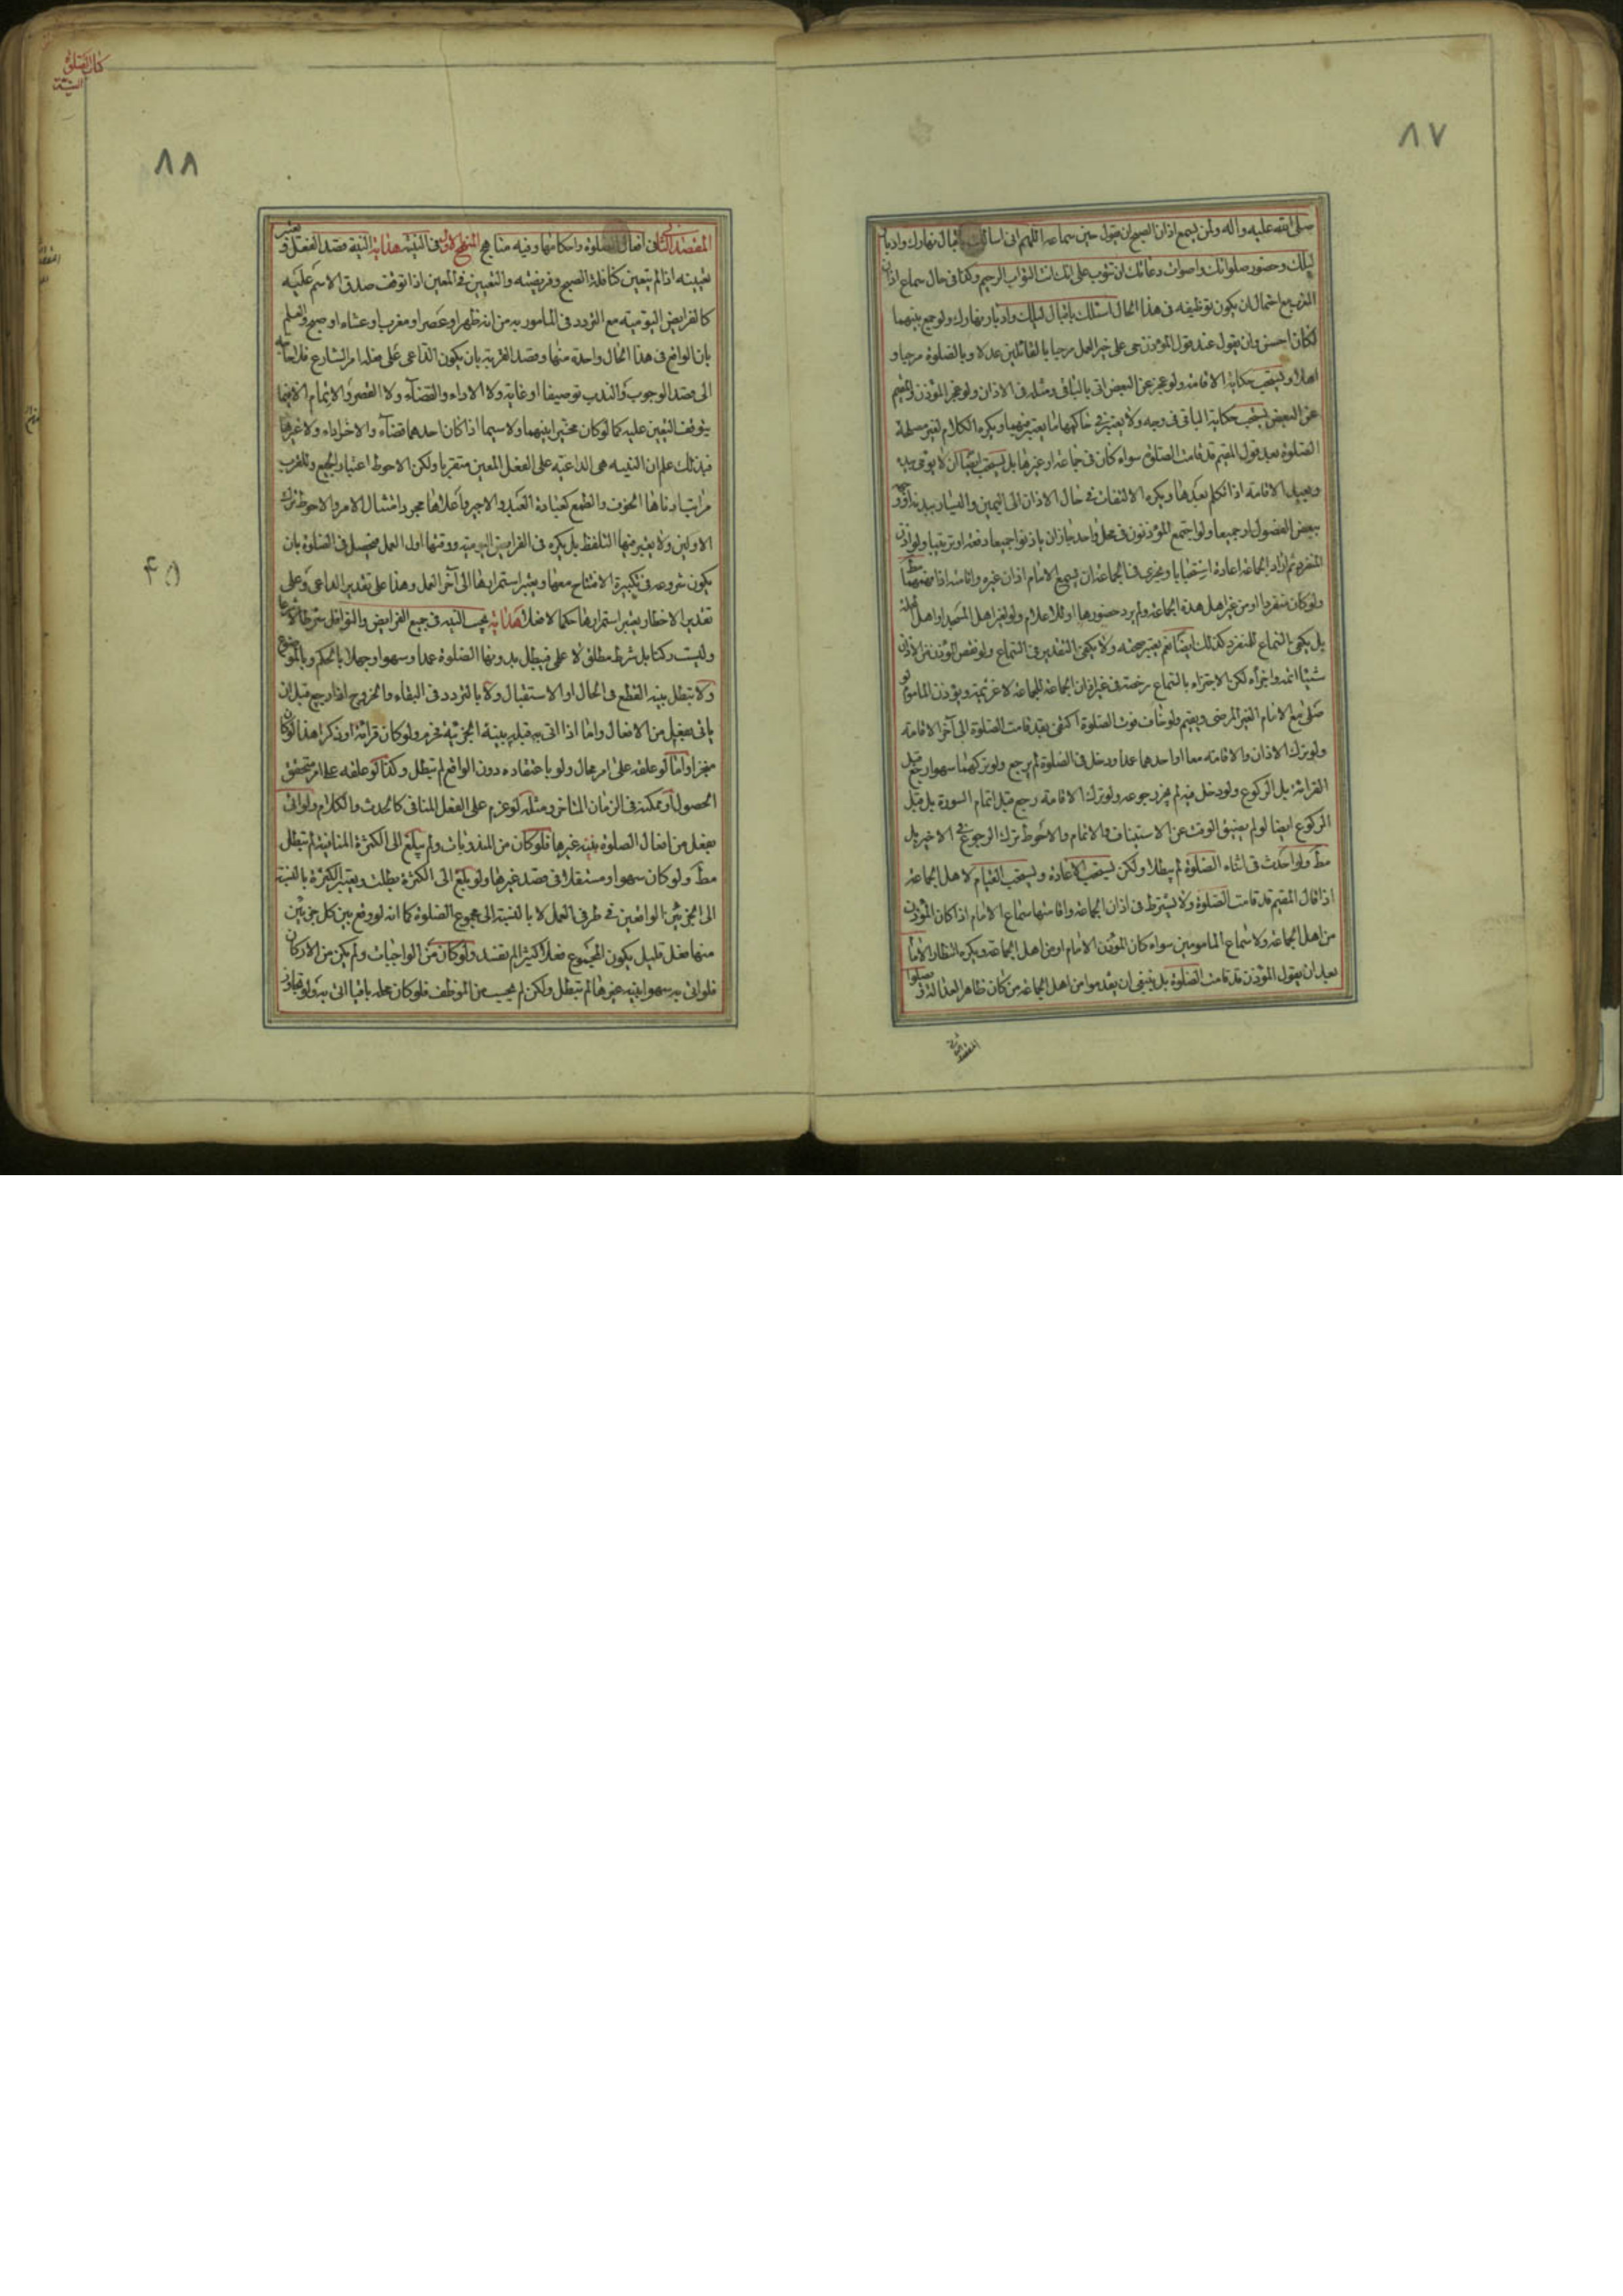 ٨٧
صلى الله عليه وآله ولمن يسمع اذان الصبح ان يقول حين سماعه اللهم انى اسئلك باقبال نهارك وادبار
ليلك وحضور صلواتك واصوات دعائك ان تتوب على انك انت التواب الرحيم وكذا فى حال سماع اذان
المغرب مع احتمال ان يكون توظيفه فى هذا الحال اسئلك باقبال ليلك وادبار نهارك ولو جمع بينهما
لكان احسن وان يقول عند قول المؤذن حى على خير العمل مرحبا بالقائلين عدلا وبالصلوة مرحبا و
اهلا ويستحب حكاية الاقامة ولو عجز عن البعض اتى بالباقى ومثله فى الاذان ولو عجز المؤذن والمقيم
عن البعض يستحب حكاية الباقى فى وجه ولا يعتبر فى حاكيهما ما يعتبر فيهما ويكره الكلام لغير مصلحة
الصلوة بعد قول المقيم قد قامت الصلوة سواء كان فى جماعة او غيرها بل يستحب ايضا ان لا يومى بيده
ويعيد الاقامة اذا تكلم بعدها ويكره الالتفات فى حال الاذان الى اليمين واليسار ببدنه او وجهه
ببعض الفصول او جميعها ولو اجتمع المؤذنون فى محل واحد جاز ان ياذنوا جميعا دفعة او ترتيبا ولو اذن
المنفرد ثم اراد الجماعة اعاده استحبابا ويجزى فى الجماعة ان يسمع الامام اذان غيره واقامته اذا
ولو كان منفردا او من غير اهل هذه الجماعة ولم يرد حضورها او للاعلام ولو لغير اهل المسجد او اهل
بل يكفى بالسماع للمنفرد كذلك ايضا نعم يعتبر صحته ولا يكفى التقدير فى السماع ولو نقص المؤذن من الاذان
شيئا اتمه واجزأه لكن الاجتزاء بالسماع رخصة فى غير اذان الجماعة للجماعة لا عزيمة ويؤذن المأموم لو
صلى مع الامام الغير المرضى ويقيم ولو خاف فوت الصلوة اكتفى بقد قامت الصلوة الى آخر الاقامة
ولو ترك الاذان والاقامة معا او احدهما عمدا ودخل فى الصلوة لم يرجع ولو تركهما سهوا رجع قبل
القرائة بل الركوع ولو دخل فيه لم يجز رجوعه ولو ترك الاقامة رجع قبل اتمام السورة بل قبل
الركوع ايضا لو لم يضيق الوقت عن الاستيناف والاتمام والاحوط ترك الرجوع فى الاخير بل
مط ولو احدث فى اثناء الصلوة لم يبطلا ولكن يستحب الاعادة ويستحب القيام لاهل الجماعة
اذا قال المقيم قد قامت الصلوة ولا يشترط فى اذان الجماعة واقامتها سماع الامام اذا كان المؤذن
من اهل الجماعة ولا سماع المأمومين سواء كان المؤذن الامام او من اهل الجماعة ويكره انتظار الامام
بعد ان يقول المؤذن قد قامت الصلوة بل ينبغى ان يقدموا من اهل الجماعة من كان ظاهر العدالة و يصلوا
المقصد الثانى
كتاب الصلوة
النية
٨٨
المقصد الثانى فى افعال الصلوة واحكامها وفيه مناهج المنهج الاول فى النية هداية النية قصد الفعل و يعتبر
تعيينه اذا لم يتعين كنافلة الصبح وفريضته والتعيين فى المعين اذا توقف صدق الاسم عليه
كالفرايض اليومية مع التردد فى المأمور به من انه ظهر او عصر او مغرب او عشاء او صبح والعلم
بان الواقع فى هذا الحال واحدة منها وقصد القربة بان يكون الداعى على فعله امر الشارع فلا
الى قصد الوجوب والندب توصيفا او غاية ولا الاداء والقضآء ولا القصر والاتمام الا فيما
يتوقف التعيين عليه كما لو كان مخيرا بينهما ولا سيما اذا كان احدهما قضآء والاخر اداء ولا غيرها
فبذلك علم ان النية هى الداعية على الفعل المعين متقربا ولكن الاحوط اعتبار الجميع وللقرب
مراتب ادناها الخوف والطمع كعبادة العبد والاجير واعلاها مجرد امتثال الامر والاحوط ترك
الاولين ولا يعتبر فيها التلفظ بل يكره فى الفرايض اليومية ووقتها اول العمل فيحصل فى الصلوة بان
يكون شروعه فى تكبيرة الافتتاح معها ويعتبر استمرارها الى آخر العمل وهذا على تقدير الداعى وعلى
تقدير الاخطار يعتبر استمرارها حكما لا فعلا هداية يجب النية فى جميع الفرايض والنوافل شرطا
وليست ركنا بل شرط مطلق لا على فيبطل بدونها الصلوة عمدا وسهوا وجهلا بالحكم وبالموضوع
ولا تبطل بنية القطع فى الحال او الاستقبال ولا بالتردد فى البقاء والخروج اذا رجع قبل ان
ياتى بفعل من الافعال واما اذا اتى به قبله بنية الجزئية فيحرم ولو كان قرائة او ذكرا هذا لو كان
منجزا واما لو علقه على امر محال ولو باعتقاده دون الواقع لم تبطل وكذا لو علقه على امر متحقق
الحصول او ممكنه فى الزمان المتاخر ومثله لو عزم على الفعل المنافى كالحدث والكلام ولو اتى
بفعل من افعال الصلوة بنية غيرها فلو كان من المندوبات ولم يبلغ الى الكثرة المنافية لم تبطل
مط ولو كان سهوا ومستقلا فى قصد غيرها ولو بلغ الى الكثرة بطلت ويعتبر الكثرة بالنسبة
الى الجزئين الواقعين فى طرفى العمل لا بالنسبة الى مجموع الصلوة كما انه لو وقع بين كل جزئين
منها فعل قليل يكون المجموع فعلا كثيرا لم تفسد ولو كان من الواجبات ولم يكن من الاركان
فلو اتى به سهوا بنية غيرها لم تبطل ولكن لم يحسب من الموظف فلو كان محله باقيا اتى به ولو تجاوز
۴۵